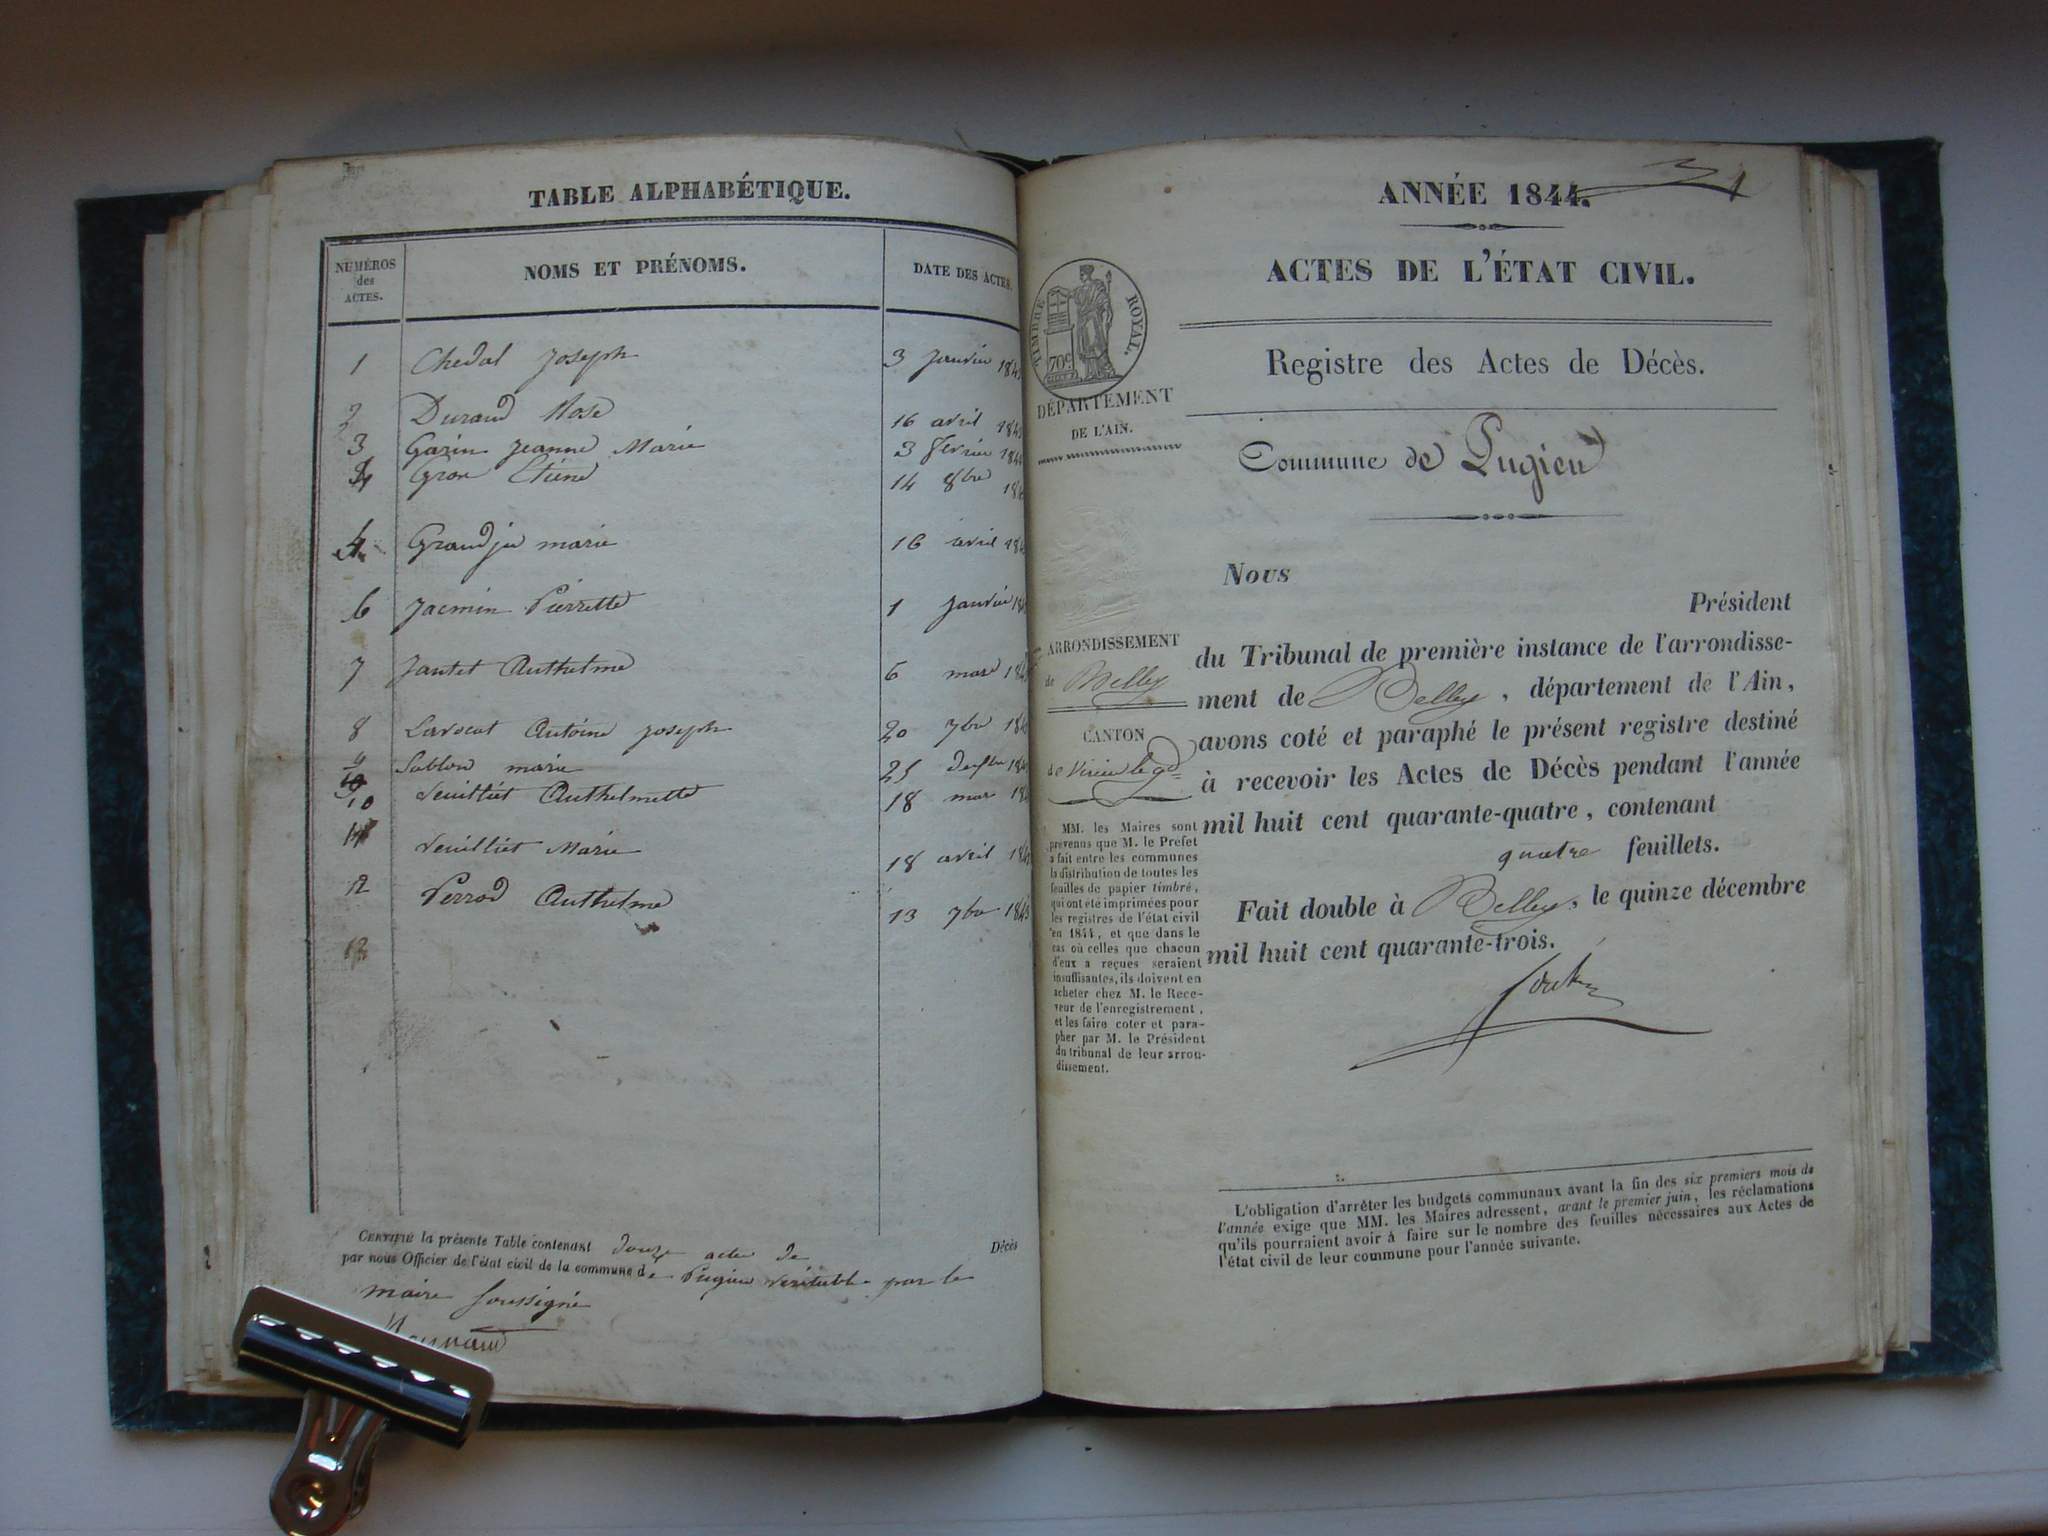 TABLE ALPHABÉTIQUE.
NUMÉROS des ACTES. NOMS ET PRÉNOMS. DATE DES ACTES.
1 Chedal Joseph 3 Janvier 1843
2 Durand Rose 16 avril 1843
3 Garin Jeanne Marie 3 Fevrier
4 Gros Etiene 14 8bre
Grandju marie 16 avril
6 Jacmin Pierrette 1 Janvier
7 Jantet Anthelme 6 mars
8 Lavocat Antoine Joseph 20 7bre
9 Sablon marie 25
10 Veuilliet Anthelmette 18 mars
11 Veuilliet Marie 18 avril
12 Perrod Anthelme 13 7bre 1843
13
CERTIFIÉ la présente Table contenant douze actes de Décès
par nous Officier de l'état civil de la commune de Pugieu veritable par le
maire soussigné
ANNÉE 1844. 1
ACTES DE L'ÉTAT CIVIL.
TIMBRE ROYAL.
70c
Registre des Actes de Décès.
DÉPARTEMENT
DE L'AIN.
Commune de Pugieu
Nous
Président
du Tribunal de première instance de l'arrondisse-
ment de Belley, département de l'Ain,
avons coté et paraphé le présent registre destiné
à recevoir les Actes de Décès pendant l'année
mil huit cent quarante-quatre, contenant
quatre feuillets.
Fait double à Belley, le quinze décembre
mil huit cent quarante-trois.
ARRONDISSEMENT
de Belley
CANTON
de Virieu le gd
MM. les Maires sont
prévenus que M. le Prefet
a fait entre les communes
la distribution de toutes les
feuilles de papier timbré,
qui ont été imprimées pour
les registres de l'état civil
en 1844, et que dans le
cas où celles que chacun
d'eux a reçues seraient
insuffisantes, ils doivent en
acheter chez M. le Rece-
veur de l'enregistrement,
et les faire coter et para-
pher par M. le Président
du tribunal de leur arron-
dissement.
L'obligation d'arrêter les budgets communaux avant la fin des six premiers mois de
l'année exige que MM. les Maires adressent, avant le premier juin, les réclamations
qu'ils pourraient avoir à faire sur le nombre des feuilles nécessaires aux Actes de
l'état civil de leur commune pour l'année suivante.